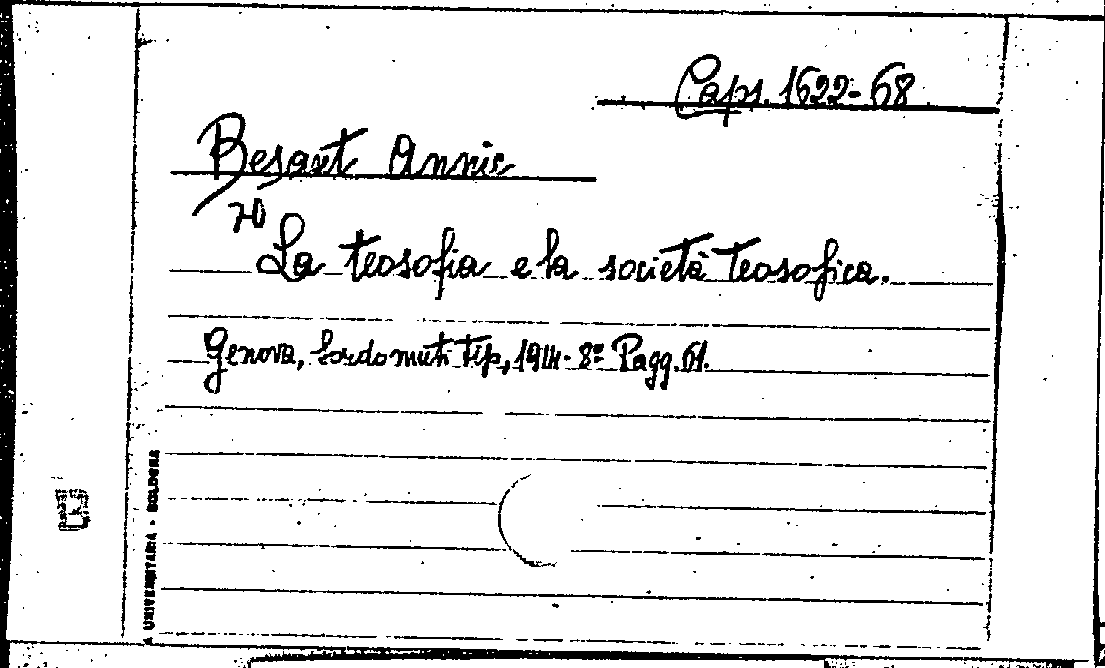 Caps. 1622-68
Besant Annie
70
La teosofia e la società teosofica.
Genova, Sordomuti tip., 1914 - 8º Pagg. 61.
A UNIVERSITARIA - BOLOGNA